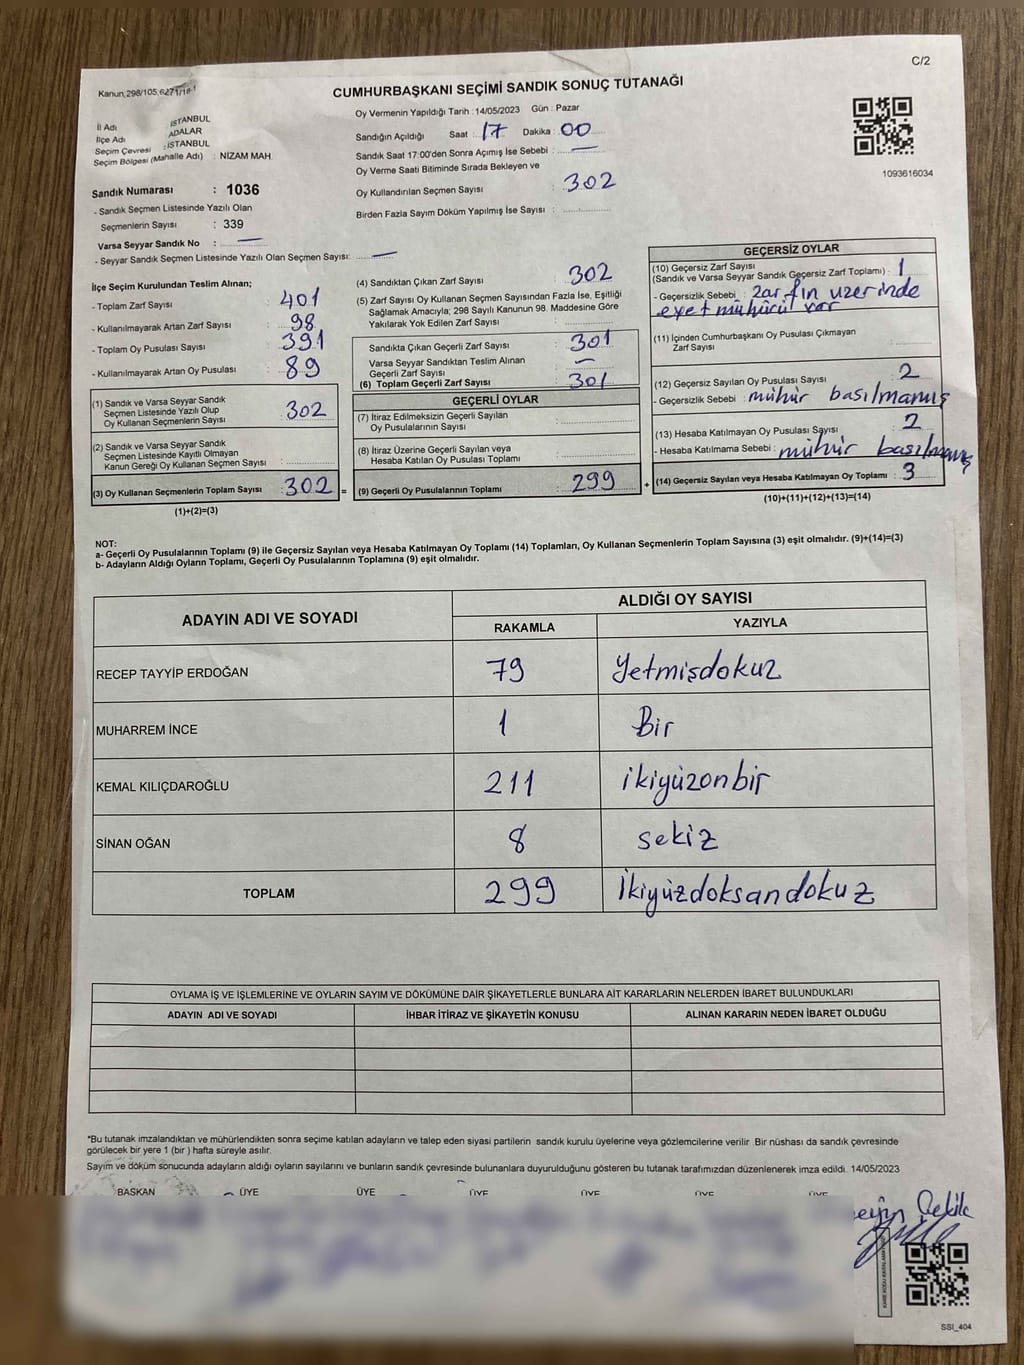 C/2
Kanun, 298/105, 6271/18-1
CUMHURBAŞKANI SEÇİMİ SANDIK SONUÇ TUTANAĞI
İl Adı : İSTANBUL
İlçe Adı : ADALAR
Seçim Çevresi : İSTANBUL
Seçim Bölgesi (Mahalle Adı) : NİZAM MAH.
Oy Vermenin Yapıldığı Tarih : 14/05/2023 Gün : Pazar
Sandığın Açıldığı Saat : 17 Dakika : 00
Sandık Saat 17:00'den Sonra Açımış İse Sebebi : —
Oy Verme Saati Bitiminde Sırada Bekleyen ve
Oy Kullandırılan Seçmen Sayısı : 302
Birden Fazla Sayım Döküm Yapılmış İse Sayısı :
1093616034
Sandık Numarası : 1036
- Sandık Seçmen Listesinde Yazılı Olan
Seçmenlerin Sayısı : 339
Varsa Seyyar Sandık No : —
- Seyyar Sandık Seçmen Listesinde Yazılı Olan Seçmen Sayısı: —
İlçe Seçim Kurulundan Teslim Alınan;
- Toplam Zarf Sayısı : 401
- Kullanılmayarak Artan Zarf Sayısı : 98
- Toplam Oy Pusulası Sayısı : 391
- Kullanılmayarak Artan Oy Pusulası : 89
(1) Sandık ve Varsa Seyyar Sandık
Seçmen Listesinde Yazılı Olup
Oy Kullanan Seçmenlerin Sayısı : 302
(2) Sandık ve Varsa Seyyar Sandık
Seçmen Listesinde Kayıtlı Olmayan
Kanun Gereği Oy Kullanan Seçmen Sayısı :
(3) Oy Kullanan Seçmenlerin Toplam Sayısı : 302 =
(1)+(2)=(3)
(4) Sandıktan Çıkan Zarf Sayısı : 302
(5) Zarf Sayısı Oy Kullanan Seçmen Sayısından Fazla İse, Eşitliği
Sağlamak Amacıyla; 298 Sayılı Kanunun 98. Maddesine Göre
Yakılarak Yok Edilen Zarf Sayısı :
Sandıkta Çıkan Geçerli Zarf Sayısı : 301
Varsa Seyyar Sandıktan Teslim Alınan
Geçerli Zarf Sayısı : —
(6) Toplam Geçerli Zarf Sayısı : 301
GEÇERLİ OYLAR
(7) İtiraz Edilmeksizin Geçerli Sayılan
Oy Pusulalarının Sayısı :
(8) İtiraz Üzerine Geçerli Sayılan veya
Hesaba Katılan Oy Pusulası Toplamı :
(9) Geçerli Oy Pusulalarının Toplamı : 299 +
GEÇERSİZ OYLAR
(10) Geçersiz Zarf Sayısı
(Sandık ve Varsa Seyyar Sandık Geçersiz Zarf Toplamı) : 1
- Geçersizlik Sebebi : zarfın üzerinde
evet mühürü var
(11) İçinden Cumhurbaşkanı Oy Pusulası Çıkmayan
Zarf Sayısı :
(12) Geçersiz Sayılan Oy Pusulası Sayısı : 2
- Geçersizlik Sebebi : mühür basılmamış
(13) Hesaba Katılmayan Oy Pusulası Sayısı : 2
- Hesaba Katılmama Sebebi : mühür basılmamış
(14) Geçersiz Sayılan veya Hesaba Katılmayan Oy Toplamı : 3
(10)+(11)+(12)+(13)=(14)
NOT:
a- Geçerli Oy Pusulalarının Toplamı (9) ile Geçersiz Sayılan veya Hesaba Katılmayan Oy Toplamı (14) Toplamları, Oy Kullanan Seçmenlerin Toplam Sayısına (3) eşit olmalıdır. (9)+(14)=(3)
b- Adayların Aldığı Oyların Toplamı, Geçerli Oy Pusulalarının Toplamına (9) eşit olmalıdır.
ADAYIN ADI VE SOYADI
ALDIĞI OY SAYISI
RAKAMLA YAZIYLA
RECEP TAYYİP ERDOĞAN 79 Yetmişdokuz
MUHARREM İNCE 1 Bir
KEMAL KILIÇDAROĞLU 211 ikiyüzonbir
SİNAN OĞAN 8 sekiz
TOPLAM 299 İkiyüzdoksandokuz
OYLAMA İŞ VE İŞLEMLERİNE VE OYLARIN SAYIM VE DÖKÜMÜNE DAİR ŞİKAYETLERLE BUNLARA AİT KARARLARIN NELERDEN İBARET BULUNDUKLARI
ADAYIN ADI VE SOYADI İHBAR İTİRAZ VE ŞİKAYETİN KONUSU ALINAN KARARIN NEDEN İBARET OLDUĞU
*Bu tutanak imzalandıktan ve mühürlendikten sonra seçime katılan adayların ve talep eden siyasi partilerin sandık kurulu üyelerine veya gözlemcilerine verilir. Bir nüshası da sandık çevresinde
görülecek bir yere 1 (bir ) hafta süreyle asılır.
Sayım ve döküm sonucunda adayların aldığı oyların sayılarını ve bunların sandık çevresinde bulunanlara duyurulduğunu gösteren bu tutanak tarafımızdan düzenlenerek imza edildi. 14/05/2023
BAŞKAN ÜYE ÜYE ÜYE ÜYE ÜYE ÜYE
SSI_404